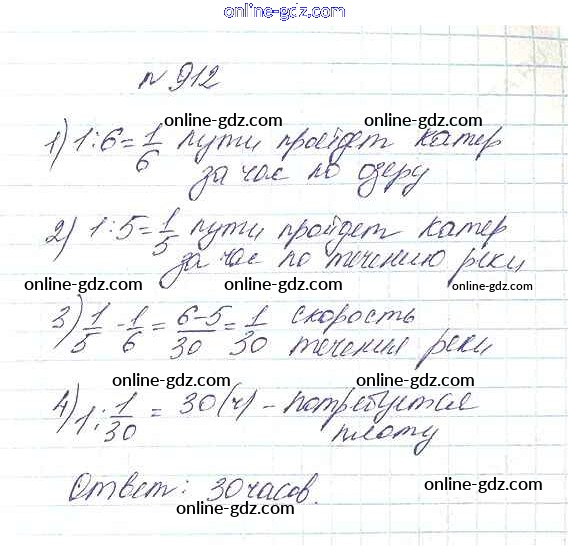 online-gdz.com
№ 912
online-gdz.com online-gdz.com
1) 1:6 = 1/6 пути пройдет катер
за час по озеру
online-gdz.com
2) 1:5 = 1/5 пути пройдет катер
за час по течению реки
online-gdz.com online-gdz.com
3) 1/5 - 1/6 = (6-5)/30 = 1/30 скорость
течения реки
online-gdz.com
4) 1 : 1/30 = 30 (ч) – потребуется
плоту
online-gdz.com
Ответ: 30 часов.
online-gdz.com
online-gdz.com